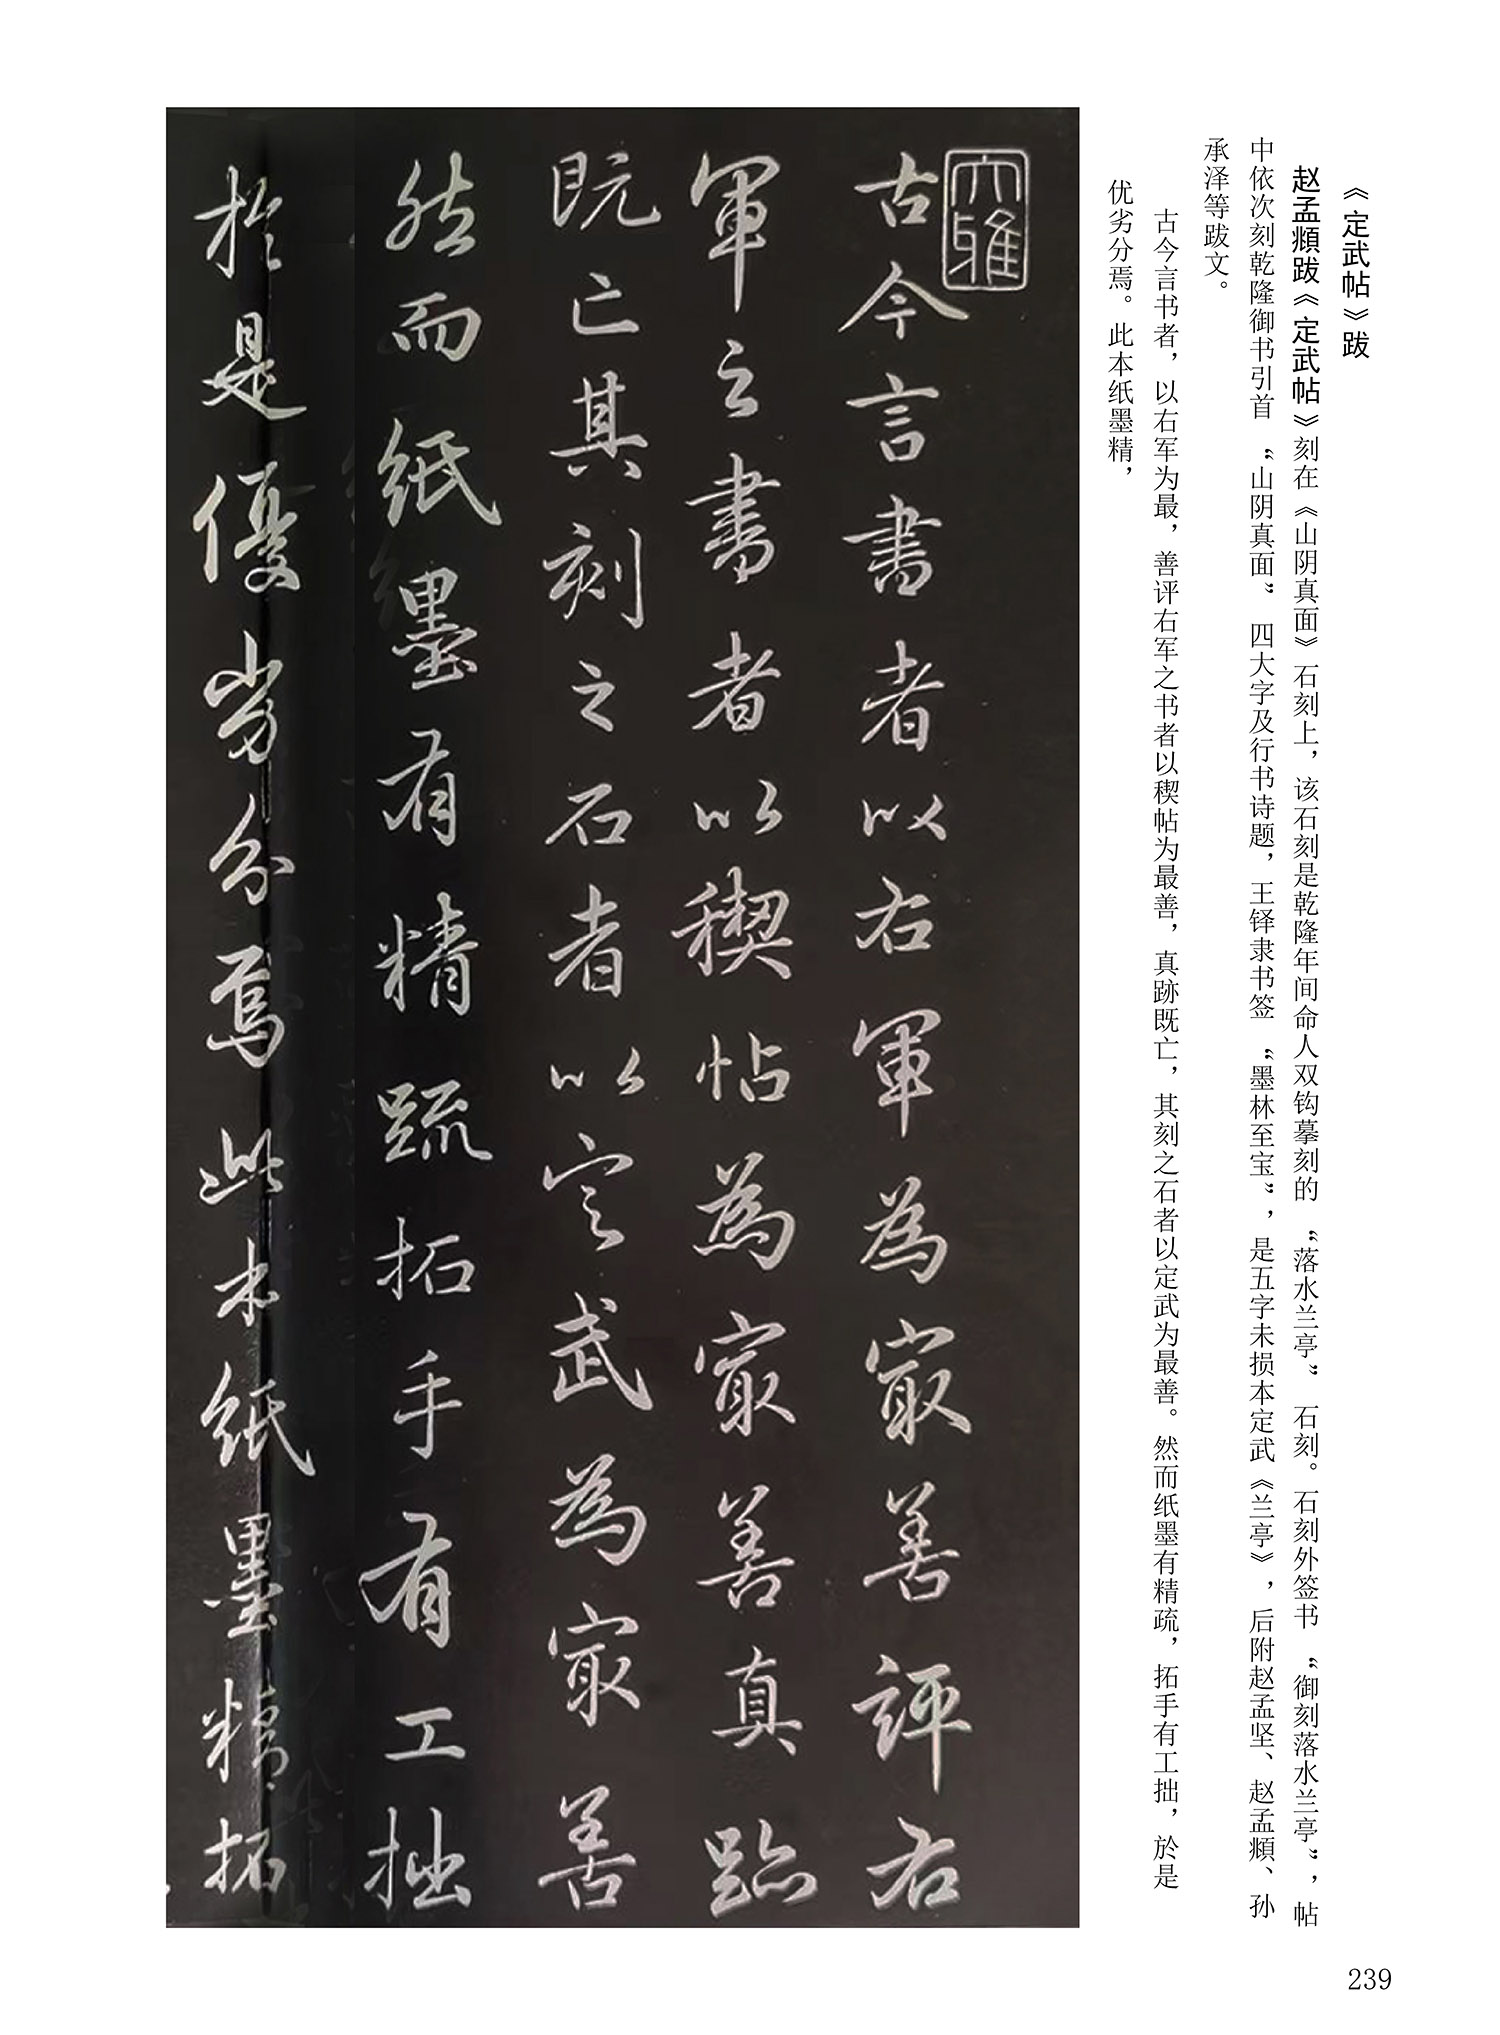 《定武帖》跋
赵孟頫跋《定武帖》刻在《山阴真面》石刻上，该石刻是乾隆年间命人双钩摹刻的“落水兰亭”石刻。石刻外签书“御刻落水兰亭”，帖
中依次刻乾隆御书引首“山阴真面”四大字及行书诗题，王铎隶书签“墨林至宝”，是五字未损本定武《兰亭》，后附赵孟坚、赵孟頫、孙
承泽等跋文。
古今言书者，以右军为最，善评右军之书者以稧帖为最善，真跡既亡，其刻之石者以定武为最善。然而纸墨有精疏，拓手有工拙，於是
优劣分焉。此本纸墨精，
大雅
古今言書者以右軍為冣善評右
軍之書者以稧帖為冣善真跡
既亡其刻之石者以定武為冣善
然而紙墨有精疏拓手有工拙
於是優劣分焉此本紙墨精拓
239